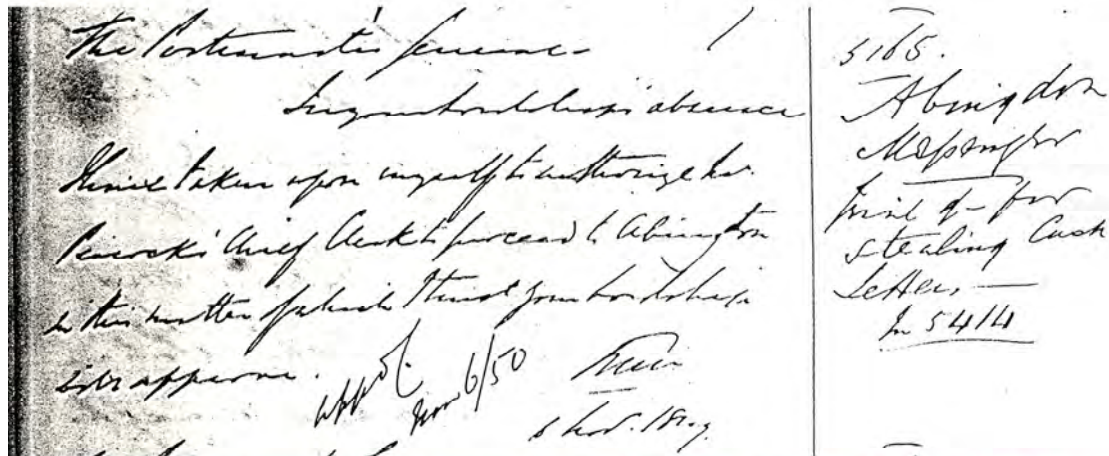 The Postmaster General
In your Lordship's absence
I have taken upon myself to authorize Mr.
Peacock's Chief Clerk to proceed to Abingdon
in this matter of which I trust your Lordship
will approve.
appd.
Nov 6/50
6 Nov.
5165.
Abingdon
Messenger
Trial of - for
stealing Cash
Letters, —
In 5414